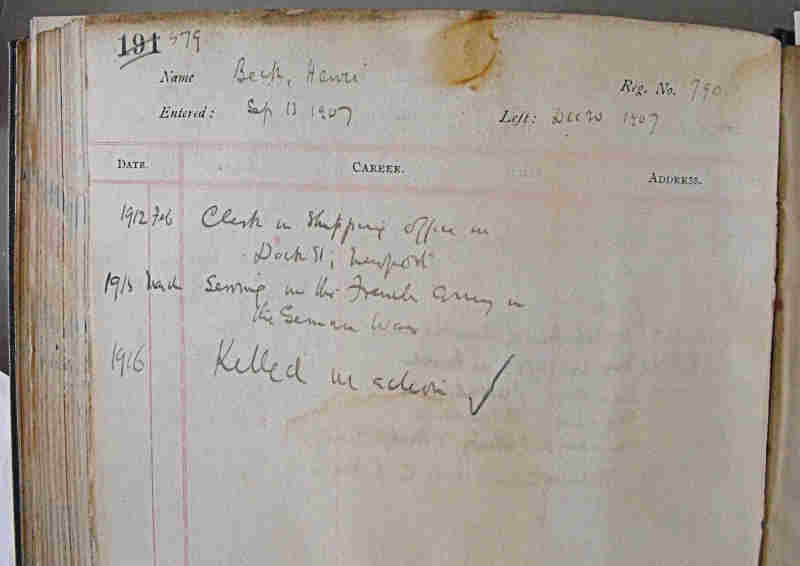 191 579
Name Beck, Henri
Reg. No. 790
Entered: Sep 13 1907
Left: Dec 20 1907
DATE. CAREER. ADDRESS.
1912 Feb Clerk in Shipping office in
Dock St, Newport
1915 March Serving in the French Army in
the German War
1916 Killed in action